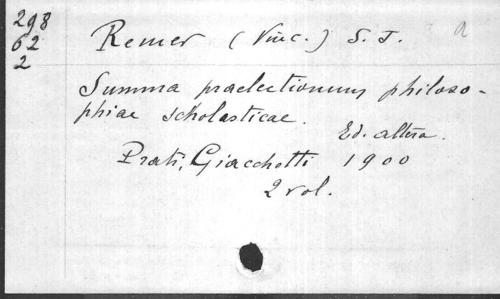 298
62
2
Remer (Vinc.) S. J. a
Summa praelectionum philoso-
phiae scholasticae.
Ed. altera.
Prati, Giacchetti 1900
2 vol.